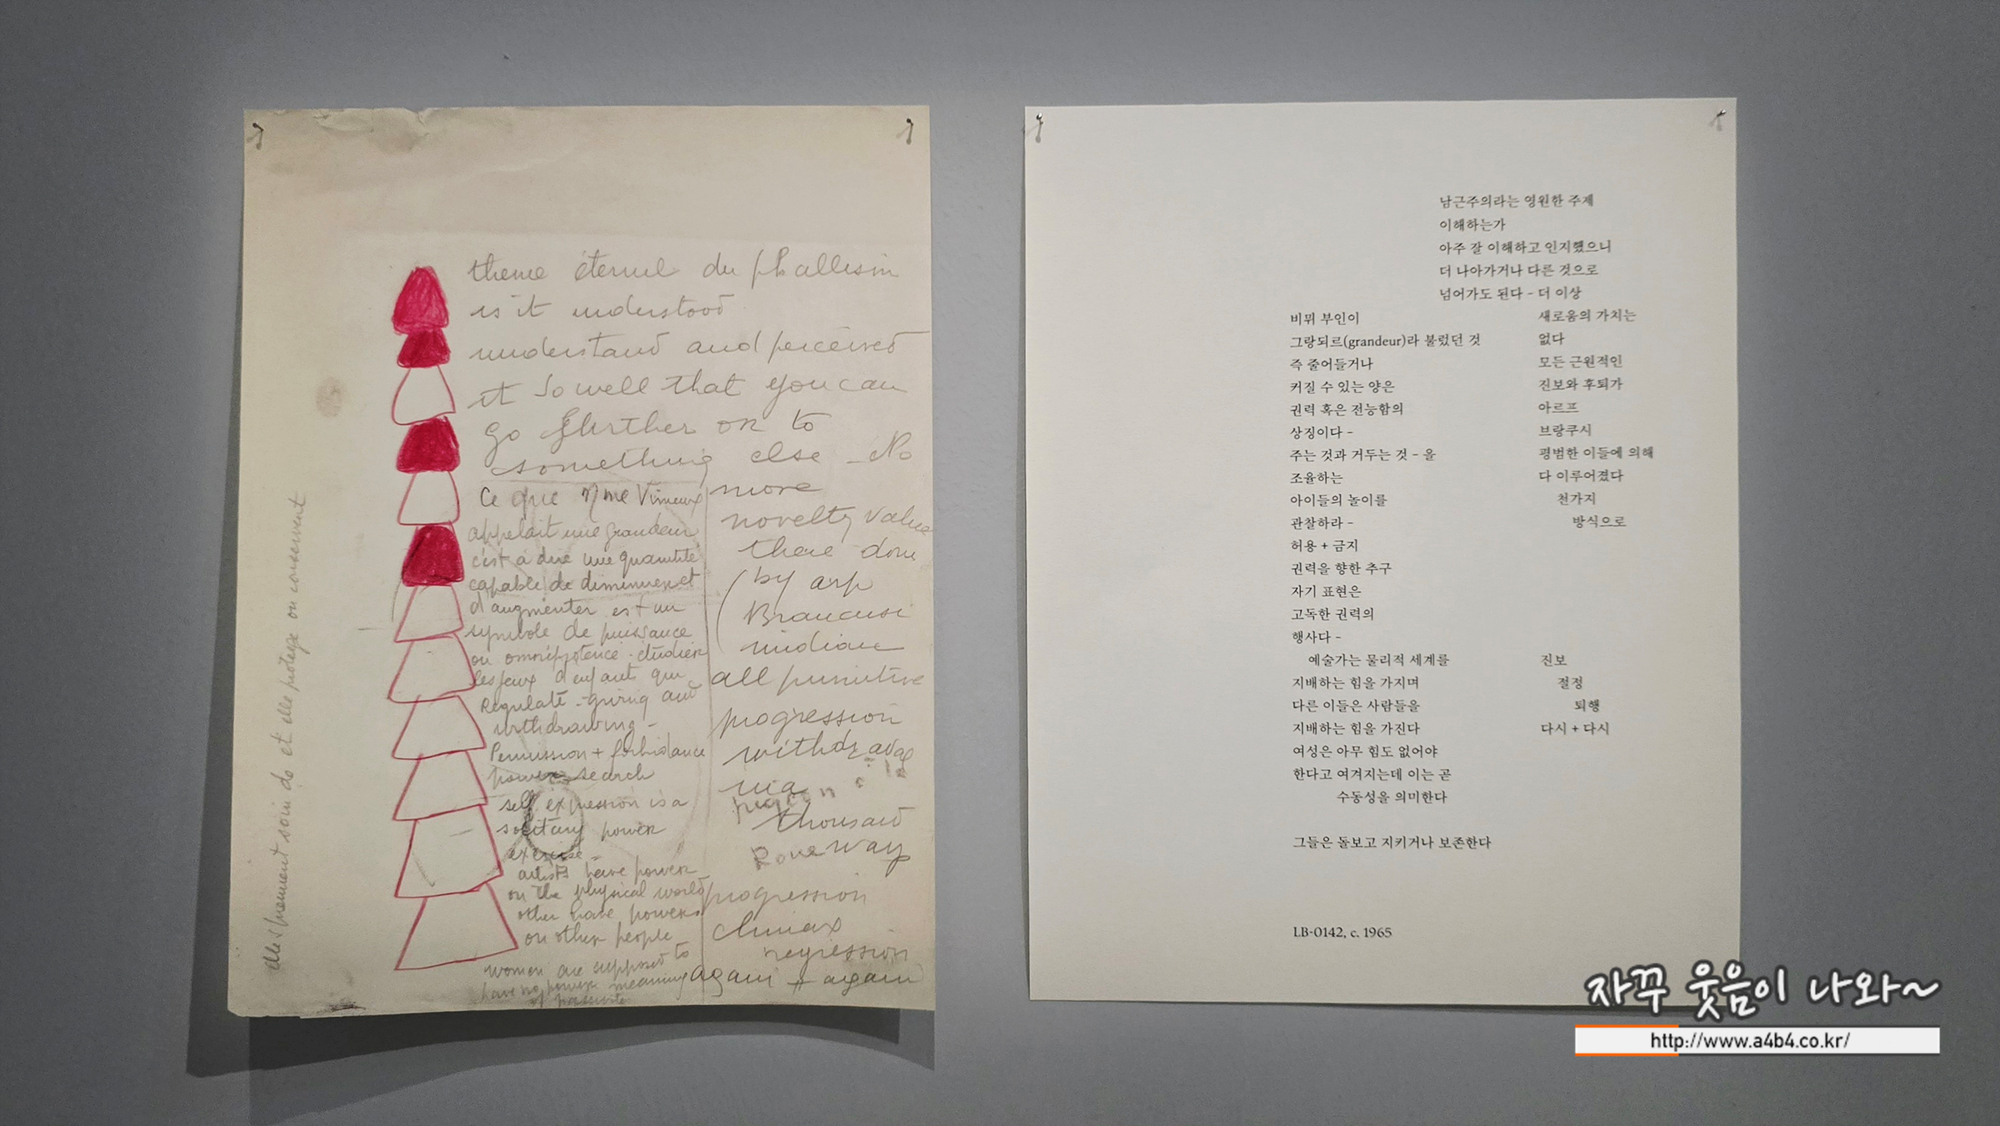 theme éternel du phallisim
is it understood
understand and perceived
it so well that you can
go further on to
something else - No
more
novelty value
there done
by arp
Brancusi
indian
all primitive
progression
withdrawa
thousand
way
progression
climax
regression
again + again
ce que Mme Vimeux
appelait une grandeur
c'est à dire une quantité
capable de diminuer et
d'augmenter est un
symbole de puissance
ou omnipotence - étudier
les jeux d'enfant qui
Regulate - giving and
withdrawing -
Permission + forbidance
power search
self expression is a
solitary power
exercise -
artists have power
on the physical world
other have powers
on other people
women are supposed to
have no power meaning
of passivite
elles prennent soin de et elle protege ou conservent
남근주의라는 영원한 주제
이해하는가
아주 잘 이해하고 인지했으니
더 나아가거나 다른 것으로
넘어가도 된다 - 더 이상
새로움의 가치는
없다
모든 근원적인
진보와 후퇴가
아르프
브랑쿠시
평범한 이들에 의해
다 이루어졌다
천가지
방식으로
비뮈 부인이
그랑되르(grandeur)라 불렀던 것
즉 줄어들거나
커질 수 있는 양은
권력 혹은 전능함의
상징이다 -
주는 것과 거두는 것 - 을
조율하는
아이들의 놀이를
관찰하라 -
허용 + 금지
권력을 향한 추구
자기 표현은
고독한 권력의
행사다 -
예술가는 물리적 세계를
지배하는 힘을 가지며
다른 이들은 사람들을
지배하는 힘을 가진다
여성은 아무 힘도 없어야
한다고 여겨지는데 이는 곧
수동성을 의미한다
진보
절정
퇴행
다시 + 다시
그들은 돌보고 지키거나 보존한다
LB-0142, c. 1965
자꾸 웃음이 나와~
http://www.a4b4.co.kr/